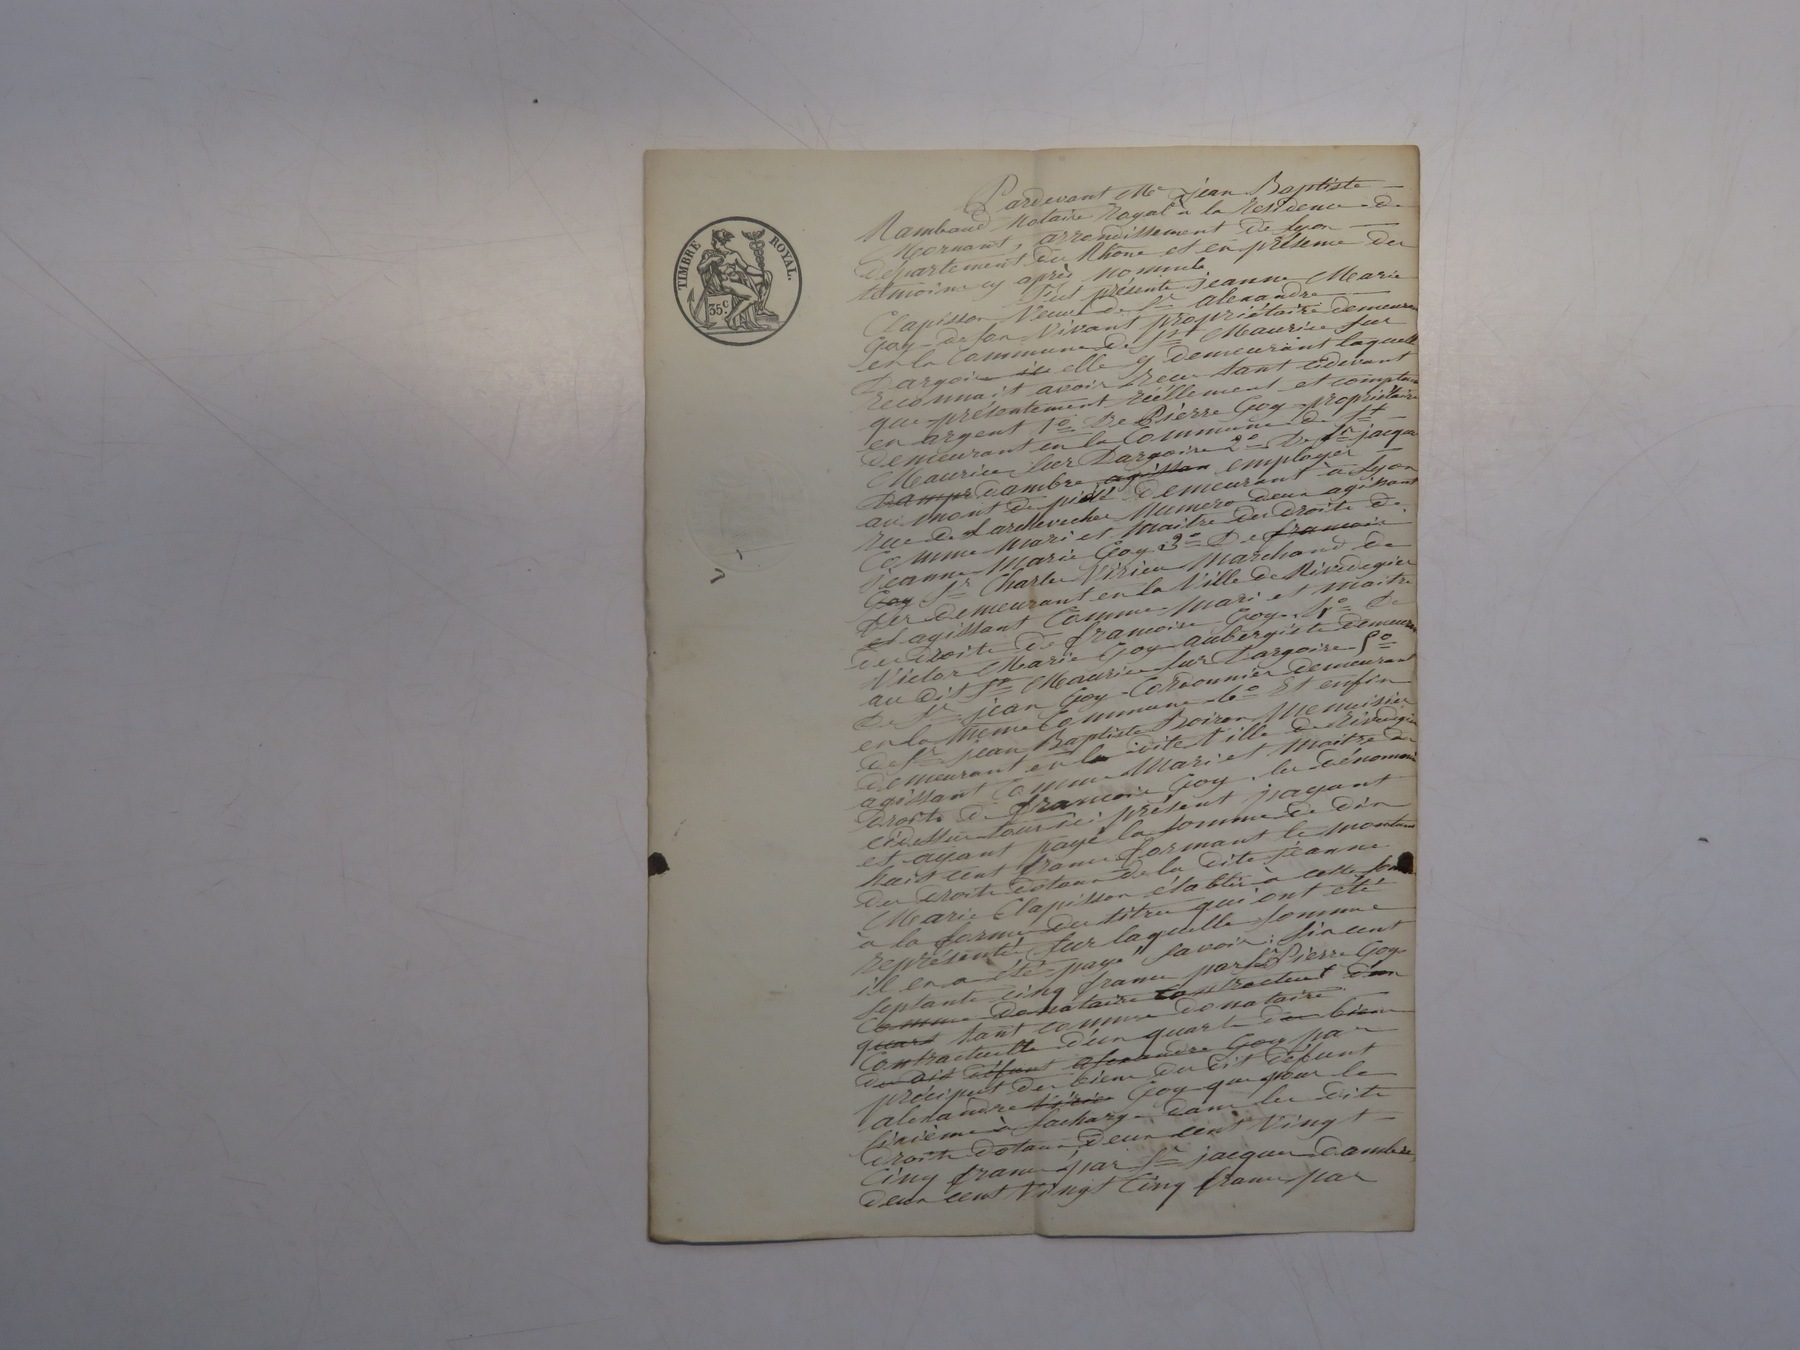 TIMBRE ROYAL.
35 c.
Pardevant Me jean Baptiste
Rambaud Notaire Royal à la résidence de
Mornant, arrondissement de Lyon
département du Rhône et en présence des
témoins cy après nommés
fut présente jeanne Marie
Clapisson Veuve de Sr alexandre
Goy de son Vivant propriétaire demeurant
en la Commune de St Maurice sur
Dargoire elle y demeurant laquelle
reconnait avoir reçu tant cidevant
que présentement réellement et comptant
en argent 1o De Pierre Goy propriétaire
demeurant en la Commune de St
Maurice sur Dargoire 2o De Sr jacque
dambre agissan employer
au mont de piété demeurant à Lyon
rue de Larchevecher Numero deux agissant
Comme Mari et maitre des droits de
jeanne Marie Goy 3o De francoise
Goy Sr Charle Virieu Marchand de
fer demeurant en la Ville de Rivedegier
et agissant Comme Mari et maitre
des droits de francoise Goy 4o De
Victor Marie Goy aubergiste demeurant
au dit St Maurice sur Dargoire 5o
De Sr jean Goy Cordonnier demeurant
en la même Commune 6o Et enfin
de Sr jean Baptiste Poiron Menuisier
demeurant en la dite Ville de Rivedegier
agissant Comme Mari et maitre des
droits de francoise Goy, les dénommés
cidessus tous ici présent payant
et ayant payé la somme de dix
huit cent francs formant le montant
des droits dotaux de la dite jeanne
Marie Clapisson établis à cette somme
à la forme des titres qui ont été
représentés sur laquelle somme
il en a été payé savoir: six cent
septante cinq francs par Sr Pierre Goy
Comme donataire contractuel d'un
quart tant comme donataire
Contractuelle d'un quart des biens
du dit défunt alexandre Goy par
préciput des biens du dit défunt
alexandre Goy que pour le
sixième à sa charge dans les dits
droits dotaux, deux cent Vingt
Cinq francs par Sr jacques dambre,
deux cent Vingt Cinq francs par